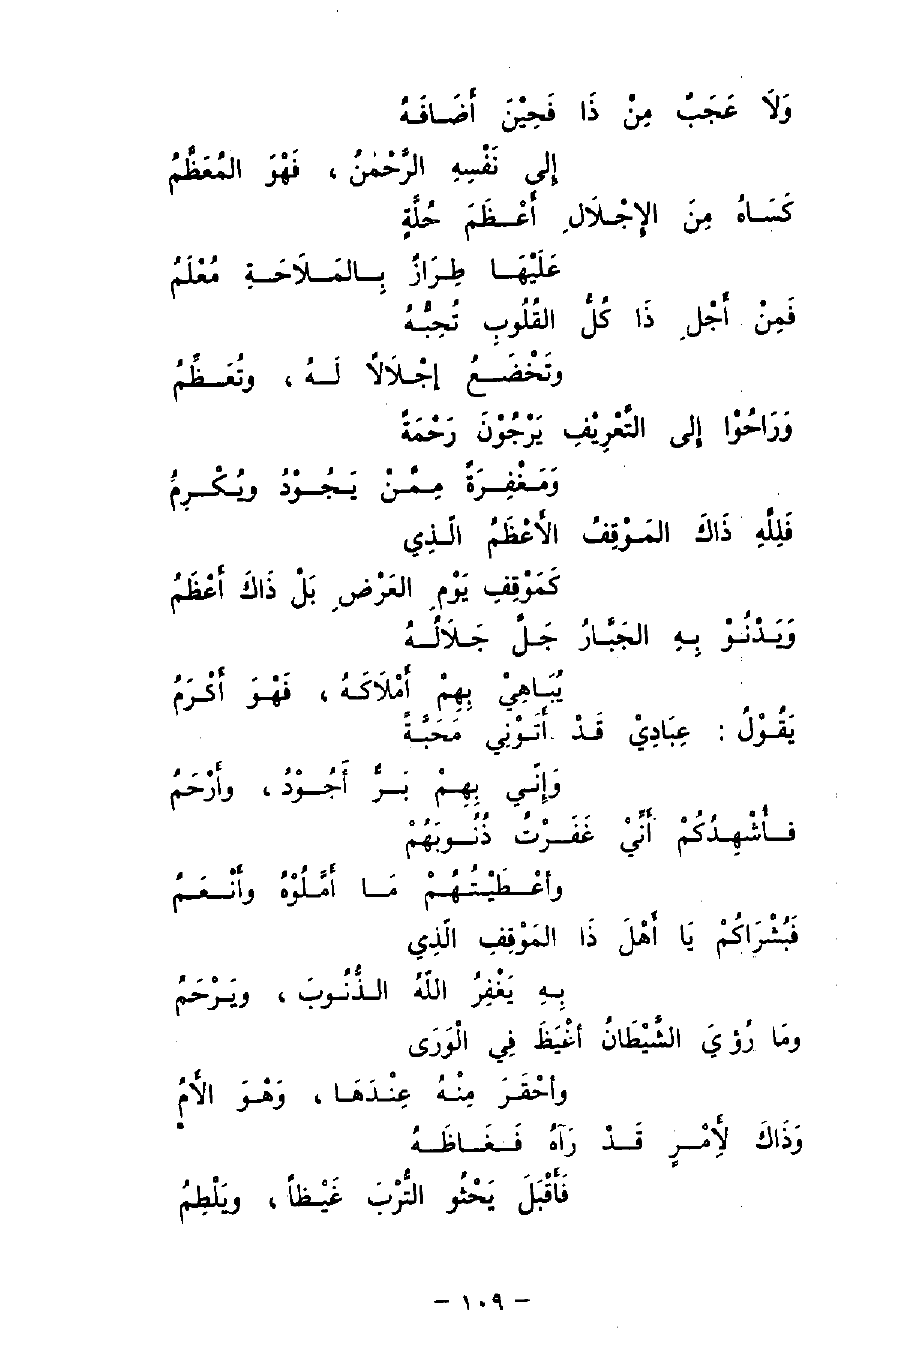 وَلَا عَجَبٌ مِنْ ذَا فَحِيْنَ أَضَافَهُ
إِلى نَفْسِهِ الرَّحْمٰنُ ، فَهْوَ المُعَظَّمُ
كَسَاهُ مِنَ الإِجْلَالِ أَعْظَمَ حُلَّةٍ
عَلَيْهَا طِرَازٌ بِالمَلَاحَةِ مُعْلَمُ
فَمِنْ أَجْلِ ذَا كُلُّ القُلُوبِ تُحِبُّهُ
وتَخْضَعُ إِجْلَالًا لَهُ ، وتُعَظِّمُ
وَرَاحُوْا إِلى التَّعْرِيْفِ يَرْجُوْنَ رَحْمَةً
وَمَغْفِرَةً مِمَّنْ يَجُوْدُ ويُكْرِمُ
فَلِلَّهِ ذَاكَ المَوْقِفُ الأَعْظَمُ الَّذِي
كَمَوْقِفِ يَوْمِ العَرْضِ بَلْ ذَاكَ أَعْظَمُ
وَيَدْنُوْ بِهِ الجَبَّارُ جَلَّ جَلَالُهُ
يُبَاهِيْ بِهِمْ أَمْلَاكَهُ ، فَهْوَ أَكْرَمُ
يَقُوْلُ : عِبَادِيْ قَدْ أَتَوْنِي مَحَبَّةً
وَإِنِّي بِهِمْ بَرٌّ أَجُوْدُ ، وأَرْحَمُ
فَأُشْهِدُكُمْ أَنِّيْ غَفَرْتُ ذُنُوبَهُمْ
وأَعْطَيْتُهُمْ مَا أَمَّلُوْهُ وأَنْعَمُ
فَبُشْرَاكُمْ يَا أَهْلَ ذَا المَوْقِفِ الَّذِي
بِهِ يَغْفِرُ اللَّهُ الذُّنُوبَ ، ويَرْحَمُ
ومَا رُؤيَ الشَّيْطَانُ أَغْيَظَ فِي الْوَرَى
وأَحْقَرَ مِنْهُ عِنْدَهَا ، وَهْوَ الأَمُ
وَذَاكَ لِأَمْرٍ قَدْ رَآهُ فَغَاظَهُ
فَأَقْبَلَ يَحْثُو التُّرْبَ غَيْظاً ، ويَلْطِمُ
- ١٠٩ -